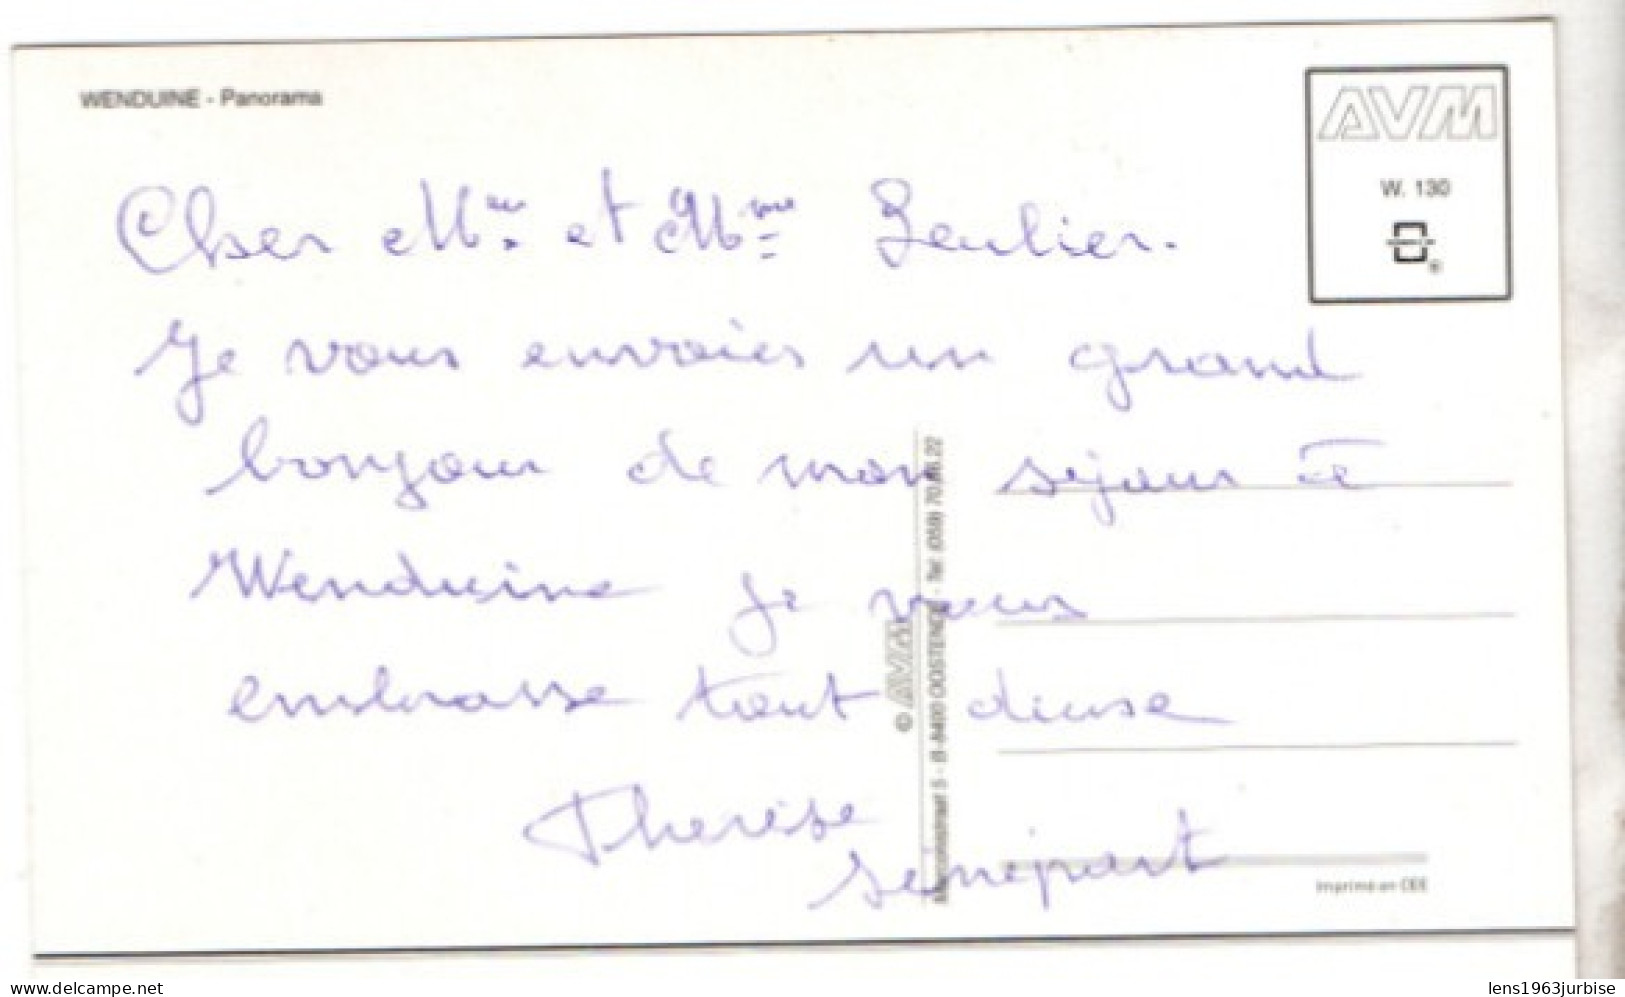 WENDUINE - Panorama
AVM
W. 130
Cher Mr. et Mme Zeulier.
Je vous envoies un grand
bonjour de mon sejour à
Wenduine je vous
embrasse tout deuse
Therèse
Sénépart
© AVM
Marconistraat 5 - B-8400 OOSTENDE - Tel. (059) 70.
Imprimé en CEE
www.delcampe.net
lens1963jurbise